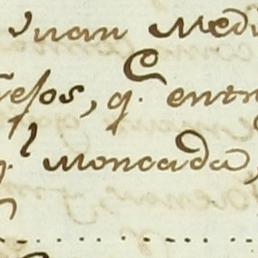 Juan Medi
esos, q.e entr
q.l Moncada,